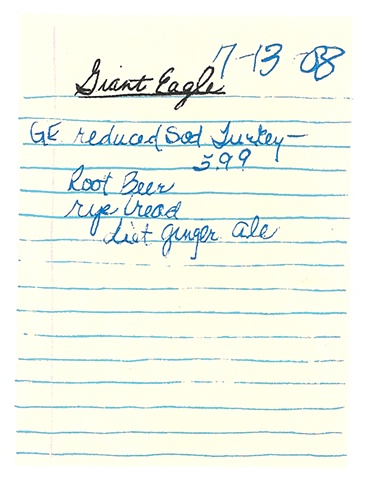 7-13 08
Giant Eagle
GE reduced Sod Turkey-
5.99
Root Beer
rye bread
diet ginger ale